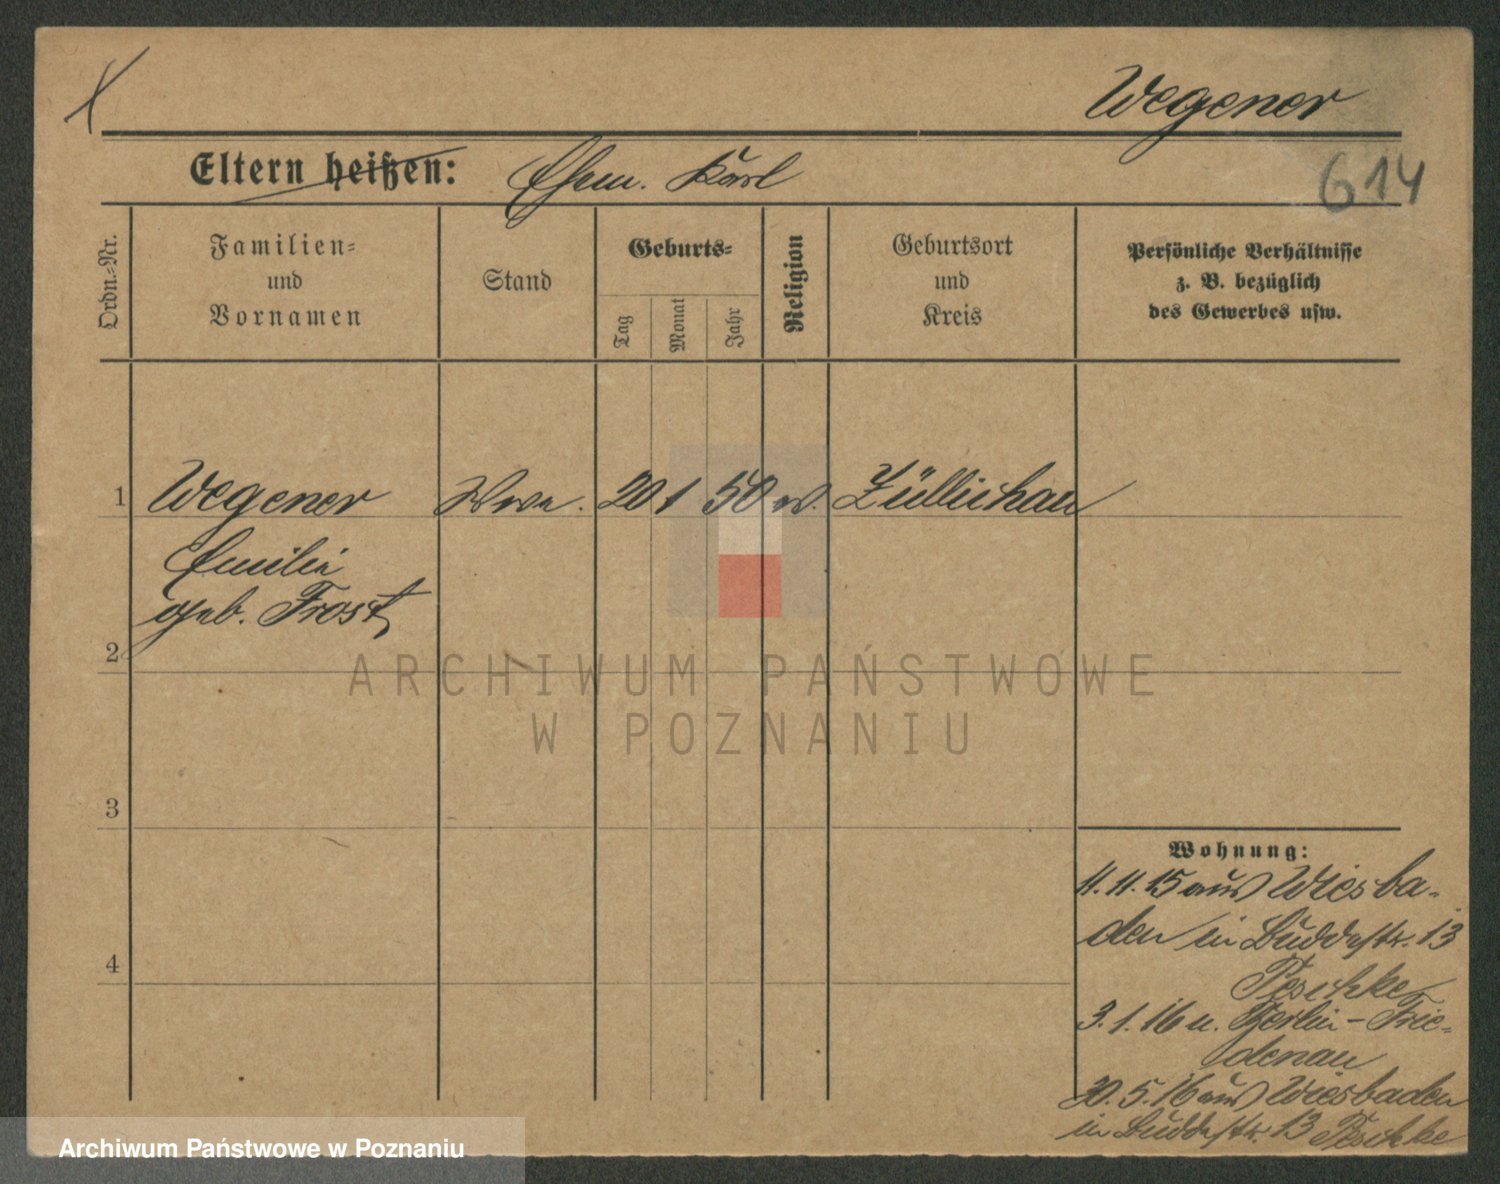 Wegener
Eltern heißen: Ehem. Karl
614
Ordn.=Nr.
Familien=
und
Vornamen
Stand
Geburts=
Tag
Monat
Jahr
Religion
Geburtsort
und
Kreis
Persönliche Verhältnisse
z. B. bezüglich
des Gewerbes usw.
1 Wegener Wwe. 20 1 50 ev. Züllichau
Emilie
geb. Frost
2
3
4
Wohnung:
11.11.15 aus Wiesba-
den in Buddestr. 13
Peschke
3.1.16 n. Berlin-Frie-
denau
30.5.16 aus Wiesbaden
in Buddestr. 13 Peschke
ARCHIWUM PAŃSTWOWE
W POZNANIU
Archiwum Państwowe w Poznaniu